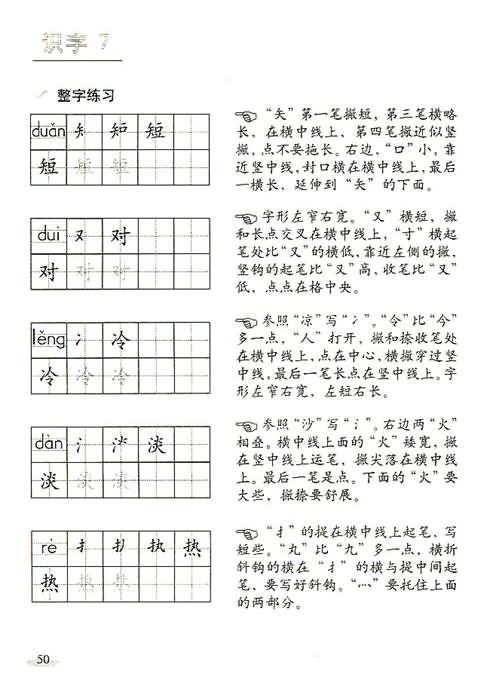 识字 7
整字练习
duǎn 矢 知 短
短 短 短
“矢”第一笔撇短，第三笔横略
长，在横中线上，第四笔撇近似竖
撇，点不要拖长。右边，“口”小，靠
近竖中线，封口横在横中线上，最后
一横长，延伸到“矢”的下面。
duì 又 对
对 对 对
字形左窄右宽。“又”横短，撇
和长点交叉在横中线上，“寸”横起
笔处比“又”的横低，靠近左侧的撇，
竖钩的起笔比“又”高，收笔比“又”
低，点点在格中央。
lěng 冫 冷
冷 冷 冷
参照“凉”写“冫”。“令”比“今”
多一点，“人”打开，撇和捺收笔处
在横中线上，点在中心，横撇穿过竖
中线，最后一笔长点在竖中线上。字
形左窄右宽，左短右长。
dàn 氵 淡
淡 淡 淡
参照“沙”写“氵”。右边两“火”
相叠。横中线上面的“火”矮宽，撇
在竖中线上运笔，撇尖落在横中线
上。最后一笔是点。下面的“火”要
大些，撇捺要舒展。
rè 扌 执 热
热 热 热
“扌”的提在横中线上起笔，写
短些。“丸”比“九”多一点，横折
斜钩的横在“扌”的横与提中间起
笔，要写好斜钩。“灬”要托住上面
的两部分。
50